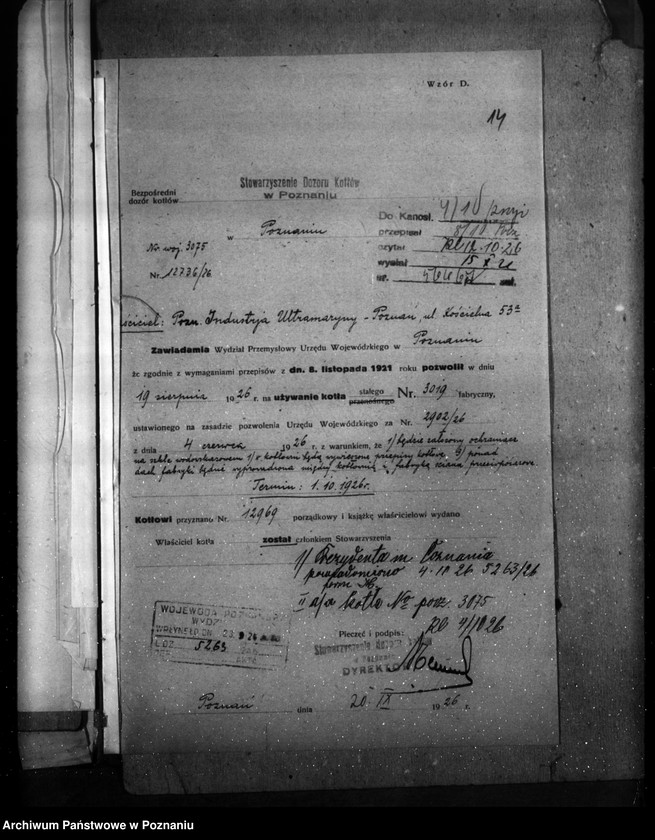 Wzór D.
14
Stowarzyszenie Dozoru Kotłów
w Poznaniu
Bezpośredni
dozór kotłów
w Poznaniu
Do Kancel. 4/10
przepisał 8/10
czytał 12.10.26
wysłał 15 X 26
Nr. woj. 3075
Nr. 12736/26
ściciel: Pozn. Industrja Ultramaryny - Poznań, ul. Kościelna 53a
Zawiadamia Wydział Przemysłowy Urzędu Wojewódzkiego w Poznaniu
że zgodnie z wymaganiami przepisów z dn. 8. listopada 1921 roku pozwolił w dniu
19 sierpnia 1926 r. na używanie kotła stałego przenośnego Nr. 3019 fabryczny,
ustawionego na zasadzie pozwolenia Urzędu Wojewódzkiego za Nr. 2902/26
z dnia 4 czerwca 1926 r. z warunkiem, że 1/ będzie założony ochraniacz
na szkle wodowskazowem 2/ w kotłowni będą wywieszone przepisy kotłowe 3/ ponad
dach fabryki będzie wyprowadzona między kotłownią i fabryką ściana przeciwpożarowa.
Termin: 1.10.1926 r.
Kotłowi przyznano Nr. 12969 porządkowy i książkę właścicielowi wydano
Właściciel kotła został członkiem Stowarzyszenia
1/ Prezydenta m. Poznania
powiadomiono 4.10 26 5263/26
II a/a kotła No porz. 3075
4/10 26
Pieczęć i podpis:
Stowarzyszenie dozoru kotłów
w Poznaniu
DYREKTOR
WOJEWODA POZNAŃSKI
WYDZ.
WPŁYNĘŁO DN. 23. 9 26
L. DZ. 5263
Poznań dnia 20 IX 1926 r.
Archiwum Państwowe w Poznaniu